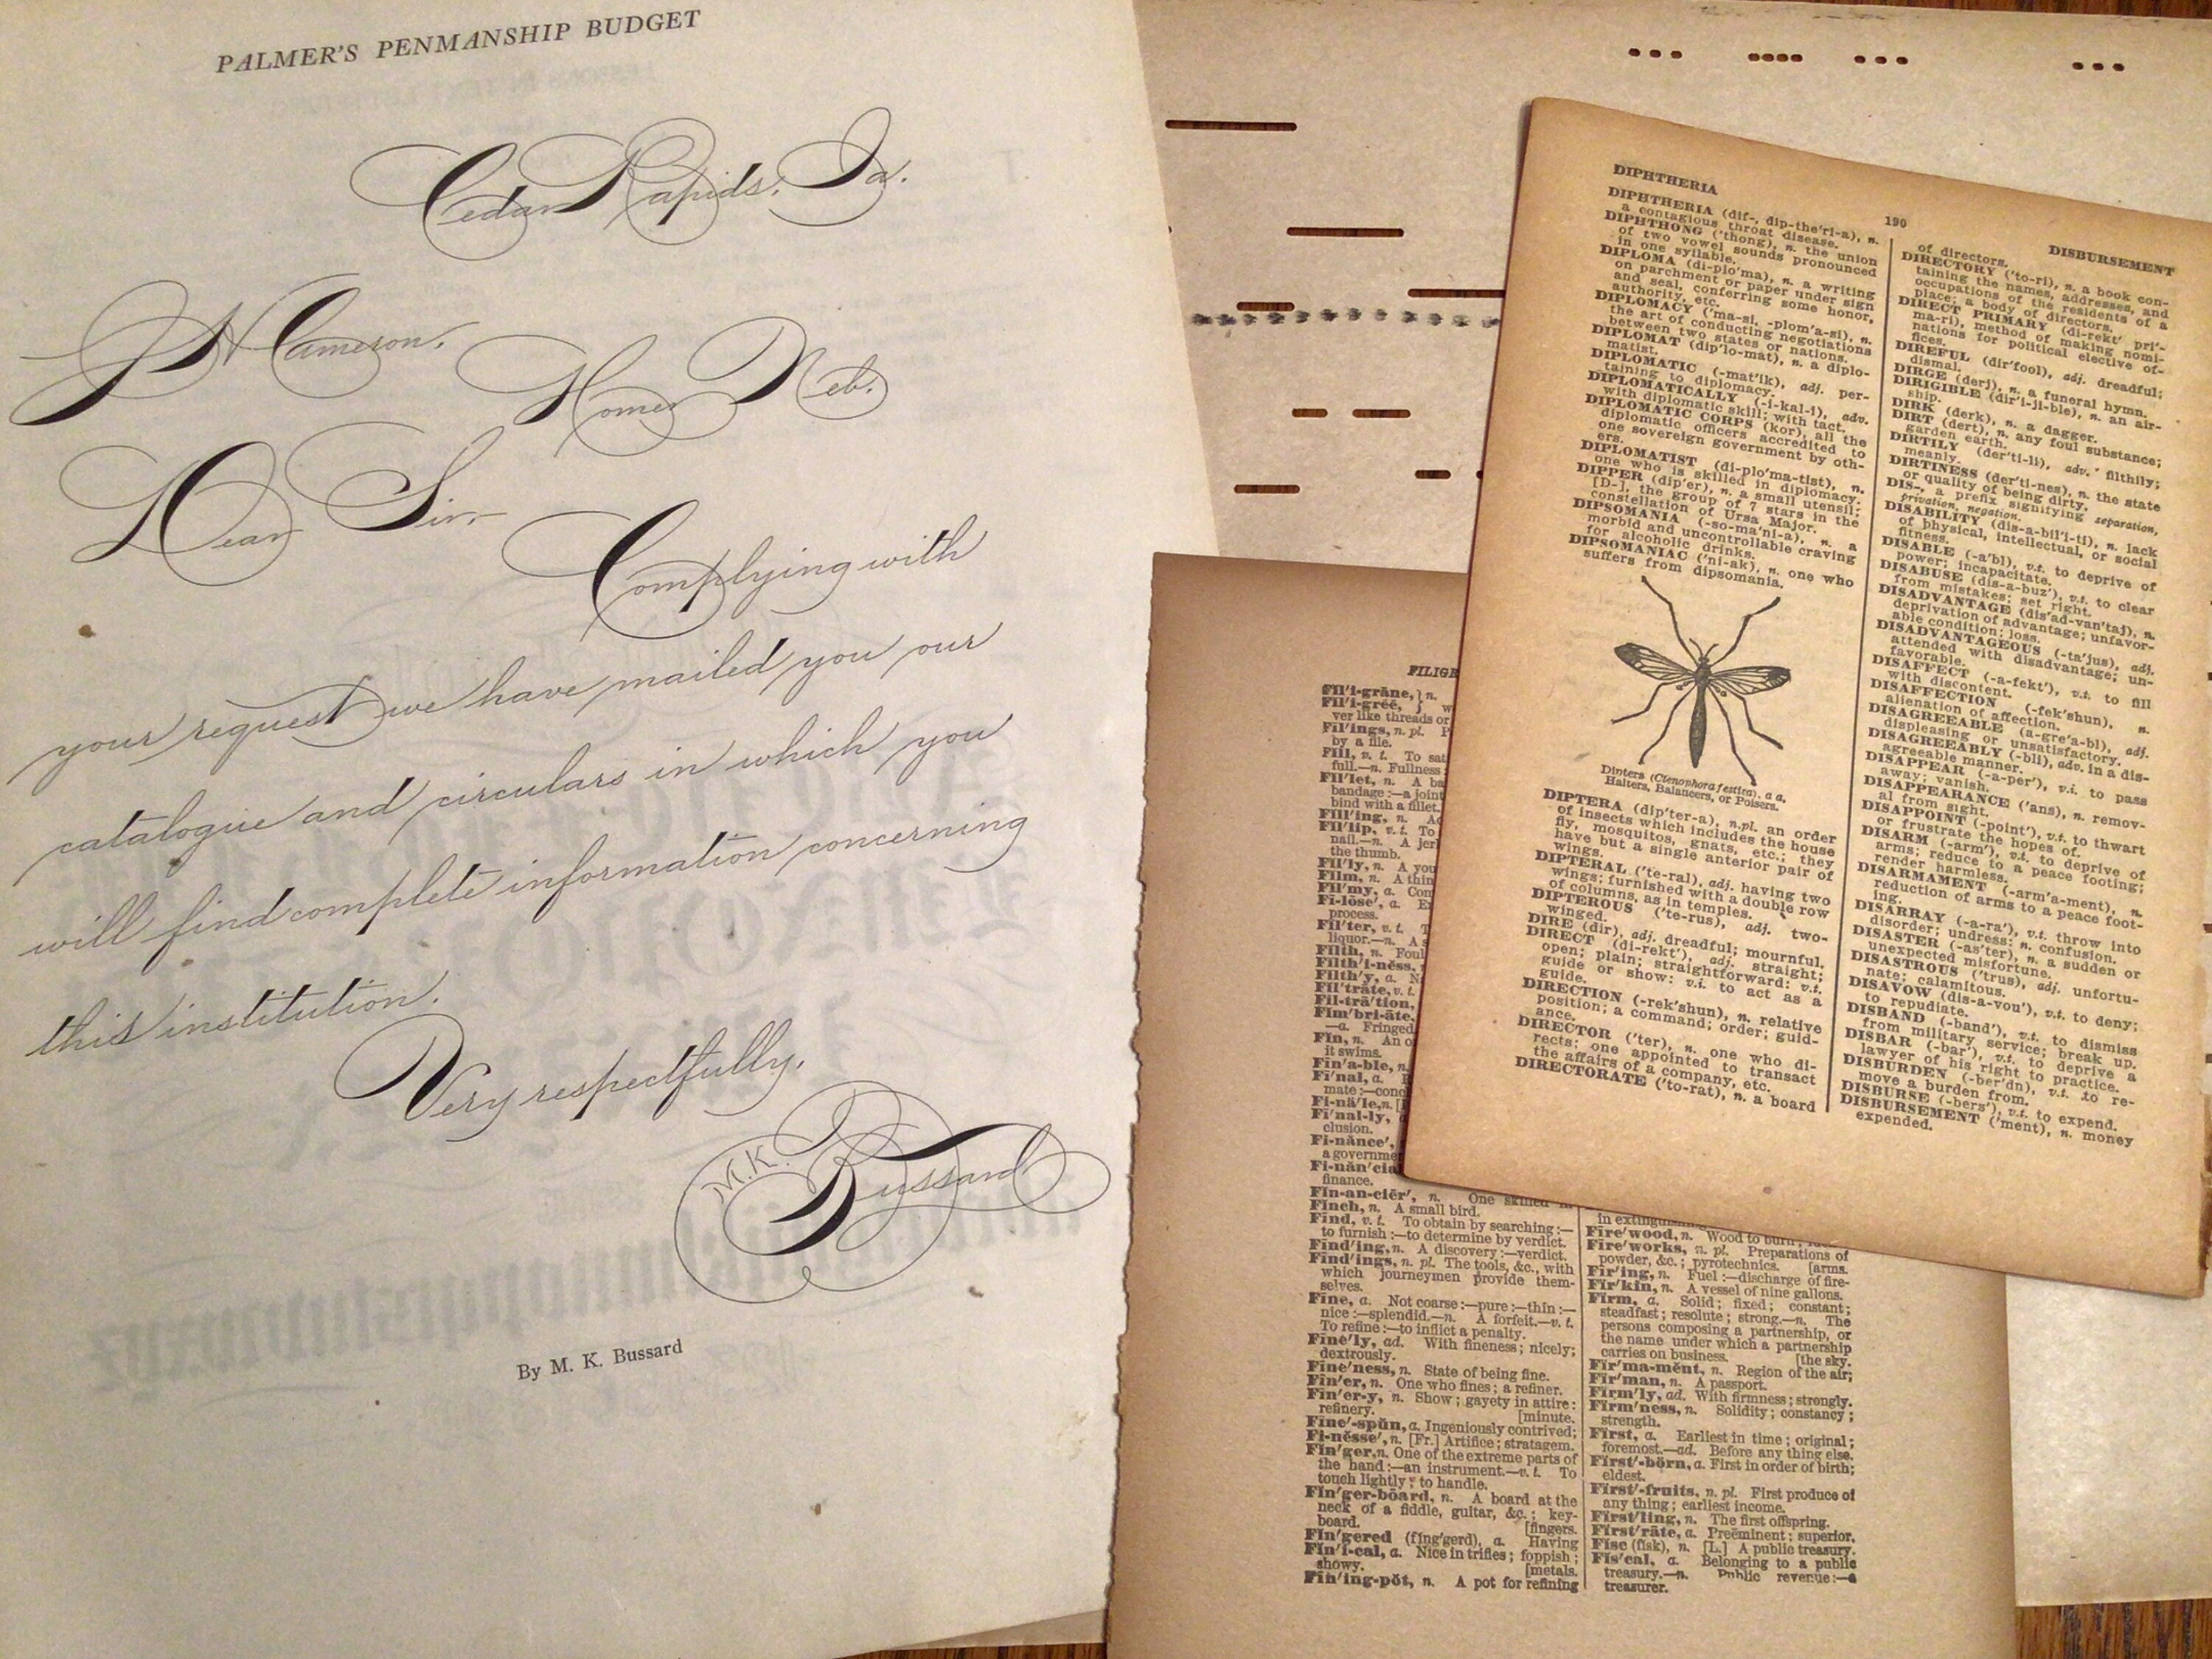 PALMER'S PENMANSHIP BUDGET
Cedar Rapids, Ia.
Cameron,
Homer Neb.
Dear Sir,—
Complying with
your request we have mailed you our
catalogue and circulars in which you
will find complete information concerning
this institution.
Very respectfully,
M.K. Bussard
By M. K. Bussard
DIPHTHERIA
190
DISBURSEMENT
DIPHTHERIA (dif-, dip-the'ri-a), n.
a contagious throat disease.
DIPHTHONG ('thong), n. the union
of two vowel sounds pronounced
in one syllable.
DIPLOMA (di-plo'ma), n. a writing
on parchment or paper under sign
and seal, conferring some honor,
authority, etc.
DIPLOMACY ('ma-si, -plom'a-si), n.
the art of conducting negotiations
between two states or nations.
DIPLOMAT (dip'lo-mat), n. a diplo-
matist.
DIPLOMATIC (-mat'ik), adj. per-
taining to diplomacy.
DIPLOMATICALLY (-i-kal-i), adv.
with diplomatic skill; with tact.
DIPLOMATIC CORPS (kor), all the
diplomatic officers accredited to
one sovereign government by oth-
ers.
DIPLOMATIST (di-plo'ma-tist), n.
one who is skilled in diplomacy.
DIPPER (dip'er), n. a small utensil;
[D-], the group of 7 stars in the
constellation of Ursa Major.
DIPSOMANIA (-so-ma'ni-a), n. a
morbid and uncontrollable craving
for alcoholic drinks.
DIPSOMANIAC ('ni-ak), n. one who
suffers from dipsomania.
Diptera (Ctenophora festiva). a a,
Halters, Balancers, or Poisers.
DIPTERA (dip'ter-a), n.pl. an order
of insects which includes the house
fly, mosquitos, gnats, etc.; they
have but a single anterior pair of
wings.
DIPTERAL ('te-ral), adj. having two
wings; furnished with a double row
of columns, as in temples.
DIPTEROUS ('te-rus), adj. two-
winged.
DIRE (dir), adj. dreadful; mournful.
DIRECT (di-rekt'), adj. straight;
open; plain; straightforward: v.t.
guide or show: v.i. to act as a
guide.
DIRECTION (-rek'shun), n. relative
position; a command; order; guid-
ance.
DIRECTOR ('ter), n. one who di-
rects; one appointed to transact
the affairs of a company, etc.
DIRECTORATE ('to-rat), n. a board
of directors.
DIRECTORY ('to-ri), n. a book con-
taining the names, addresses, and
occupations of the residents of a
place; a body of directors.
DIRECT PRIMARY (di-rekt' pri'-
ma-ri), method of making nomi-
nations for political elective of-
fices.
DIREFUL (dir'fool), adj. dreadful;
dismal.
DIRGE (derj), n. a funeral hymn.
DIRIGIBLE (dir'i-ji-ble), n. an air-
ship.
DIRK (derk), n. a dagger.
DIRT (dert), n. any foul substance;
garden earth.
DIRTILY (der'ti-li), adv. filthily;
meanly.
DIRTINESS (der'ti-nes), n. the state
or quality of being dirty.
DIS-, a prefix signifying separation,
privation, negation.
DISABILITY (dis-a-bil'i-ti), n. lack
of physical, intellectual, or social
fitness.
DISABLE (-a'bl), v.t. to deprive of
power; incapacitate.
DISABUSE (dis-a-buz'), v.t. to clear
from mistakes; set right.
DISADVANTAGE (dis'ad-van'taj), n.
deprivation of advantage; unfavor-
able condition; loss.
DISADVANTAGEOUS (-ta'jus), adj.
attended with disadvantage; un-
favorable.
DISAFFECT (-a-fekt'), v.t. to fill
with discontent.
DISAFFECTION (-fek'shun), n.
alienation of affection.
DISAGREEABLE (a-gre'a-bl), adj.
displeasing or unsatisfactory.
DISAGREEABLY (-bli), adv. in a dis-
agreeable manner.
DISAPPEAR (-a-per'), v.i. to pass
away; vanish.
DISAPPEARANCE ('ans), n. remov-
al from sight.
DISAPPOINT (-point'), v.t. to thwart
or frustrate the hopes of.
DISARM (-arm'), v.t. to deprive of
arms; reduce to a peace footing;
render harmless.
DISARMAMENT (-arm'a-ment), n.
reduction of arms to a peace foot-
ing.
DISARRAY (-a-ra'), v.t. throw into
disorder; undress: n. confusion.
DISASTER (-as'ter), n. a sudden or
unexpected misfortune.
DISASTROUS ('trus), adj. unfortu-
nate; calamitous.
DISAVOW (dis-a-vou'), v.t. to deny;
to repudiate.
DISBAND (-band'), v.t. to dismiss
from military service; break up.
DISBAR (-bar'), v.t. to deprive a
lawyer of his right to practice.
DISBURDEN (-ber'dn), v.t. to re-
move a burden from.
DISBURSE (-bers'), v.t. to expend.
DISBURSEMENT ('ment), n. money
expended.
FILIGR
Fil'i-grāne, } n.
Fil'i-grēē, } w
ver like threads or
Fil'ings, n. pl. P
by a file.
Fill, v. t. To sat
full.—n. Fullness
Fil'let, n. A ba
bandage:—a joint
bind with a fillet.
Fill'ing, n.
Fil'lip, v. t. To
nail.—n. A jer
the thumb.
Fil'ly, n. A you
Film, n. A thin
Fil'my, a. Com
Fi-lōse', a.
process.
Fil'ter, v. t. T
liquor.—n. A s
Filth, n. Foul
Filth'i-nĕss,
Filth'y, a. N
Fil'trāte, v. t.
Fil-trā'tion,
Fim'bri-āte,
—a. Fringed
Fin, n. An o
it swims.
Fin'a-ble,
Fī'nal, a.
mate:—conc
Fi-nä'le, n. [
Fī'nal-ly,
clusion.
Fi-nănce',
a governme
Fi-năn'cia
finance.
Fĭn-an-ciēr', n. One skilled in
Fĭnch, n. A small bird.
Fīnd, v. t. To obtain by searching:—
to furnish:—to determine by verdict.
Fīnd'ing, n. A discovery:—verdict.
Fīnd'ings, n. pl. The tools, &c., with
which journeymen provide them-
selves.
Fīne, a. Not coarse:—pure:—thin:—
nice:—splendid.—n. A forfeit.—v. t.
To refine:—to inflict a penalty.
Fīne'ly, ad. With fineness; nicely;
dextrously.
Fīne'ness, n. State of being fine.
Fīn'er, n. One who fines; a refiner.
Fīn'er-y, n. Show; gayety in attire:
refinery. [minute.
Fīne'-spŭn, a. Ingeniously contrived;
Fi-nĕsse', n. [Fr.] Artifice; stratagem.
Fĭn'ger, n. One of the extreme parts of
the hand:—an instrument.—v. t. To
touch lightly; to handle.
Fĭn'ger-bōard, n. A board at the
neck of a fiddle, guitar, &c.; key-
board. [fingers.
Fĭn'gered (fing'gerd), a. Having
Fĭn'i-cal, a. Nice in trifles; foppish;
showy. [metals.
Fīn'ing-pŏt, n. A pot for refining
in extinguishing
Fīre'wood, n. Wood to burn;
Fīre'works, n. pl. Preparations of
powder, &c.; pyrotechnics. [arms.
Fīr'ing, n. Fuel:—discharge of fire-
Fĭr'kin, n. A vessel of nine gallons.
Fĭrm, a. Solid; fixed; constant;
steadfast; resolute; strong.—n. The
persons composing a partnership, or
the name under which a partnership
carries on business. [the sky.
Fĭr'ma-mĕnt, n. Region of the air;
Fĭr'man, n. A passport.
Fĭrm'ly, ad. With firmness; strongly.
Fĭrm'ness, n. Solidity; constancy;
strength.
Fĭrst, a. Earliest in time; original;
foremost.—ad. Before any thing else.
Fĭrst'-bŏrn, a. First in order of birth;
eldest.
Fĭrst'-fruits, n. pl. First produce of
any thing; earliest income.
Fĭrst'ling, n. The first offspring.
Fĭrst'rāte, a. Preëminent; superior.
Fĭsc (fisk), n. [L.] A public treasury.
Fĭs'cal, a. Belonging to a public
treasury.—n. Public revenue:—a
treasurer.